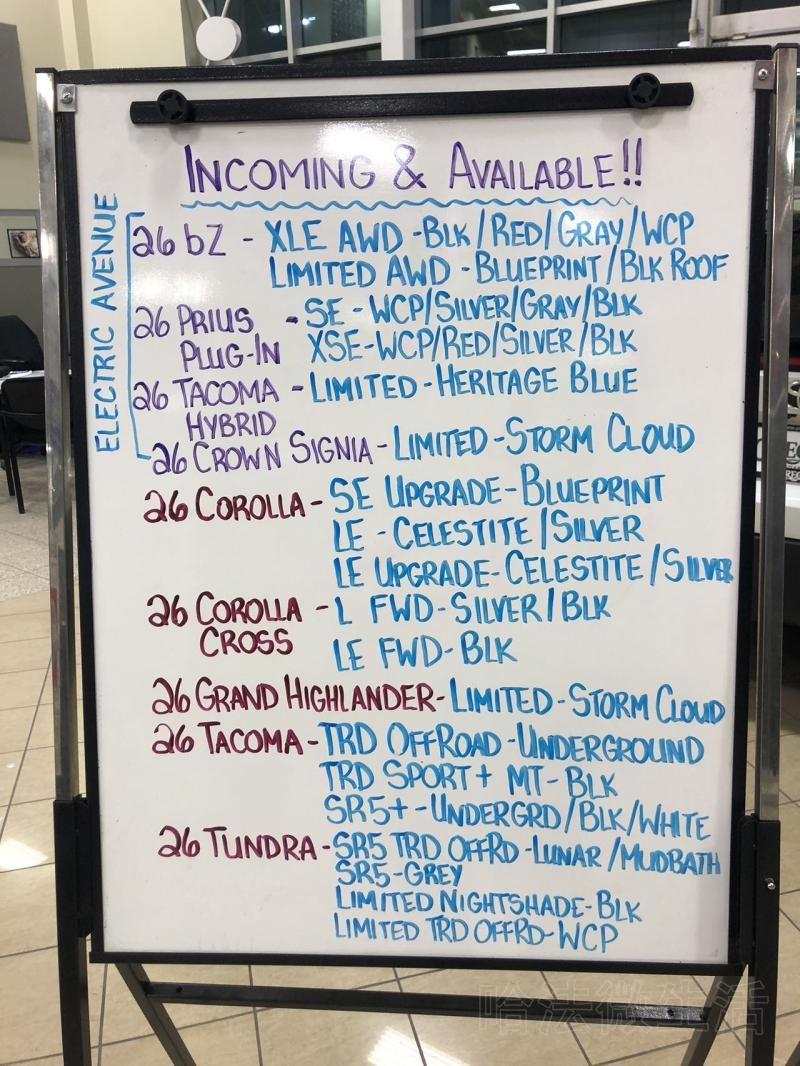 INCOMING & AVAILABLE!!
ELECTRIC AVENUE
26 bZ - XLE AWD - BLK/RED/GRAY/WCP
LIMITED AWD - BLUEPRINT/BLK ROOF
26 PRIUS - SE - WCP/SILVER/GRAY/BLK
PLUG-IN XSE-WCP/RED/SILVER/BLK
26 TACOMA - LIMITED - HERITAGE BLUE
HYBRID
26 CROWN SIGNIA - LIMITED - STORM CLOUD
26 COROLLA - SE UPGRADE - BLUEPRINT
LE - CELESTITE/SILVER
LE UPGRADE - CELESTITE/SILVER
26 COROLLA - L FWD - SILVER/BLK
CROSS
LE FWD - BLK
26 GRAND HIGHLANDER - LIMITED - STORM CLOUD
26 TACOMA - TRD OFFROAD - UNDERGROUND
TRD SPORT + MT - BLK
SR5+ - UNDERGRD/BLK/WHITE
26 TUNDRA - SR5 TRD OFFRD - LUNAR/MUDBATH
SR5-GREY
LIMITED NIGHTSHADE - BLK
LIMITED TRD OFFRD - WCP
哈法微生活